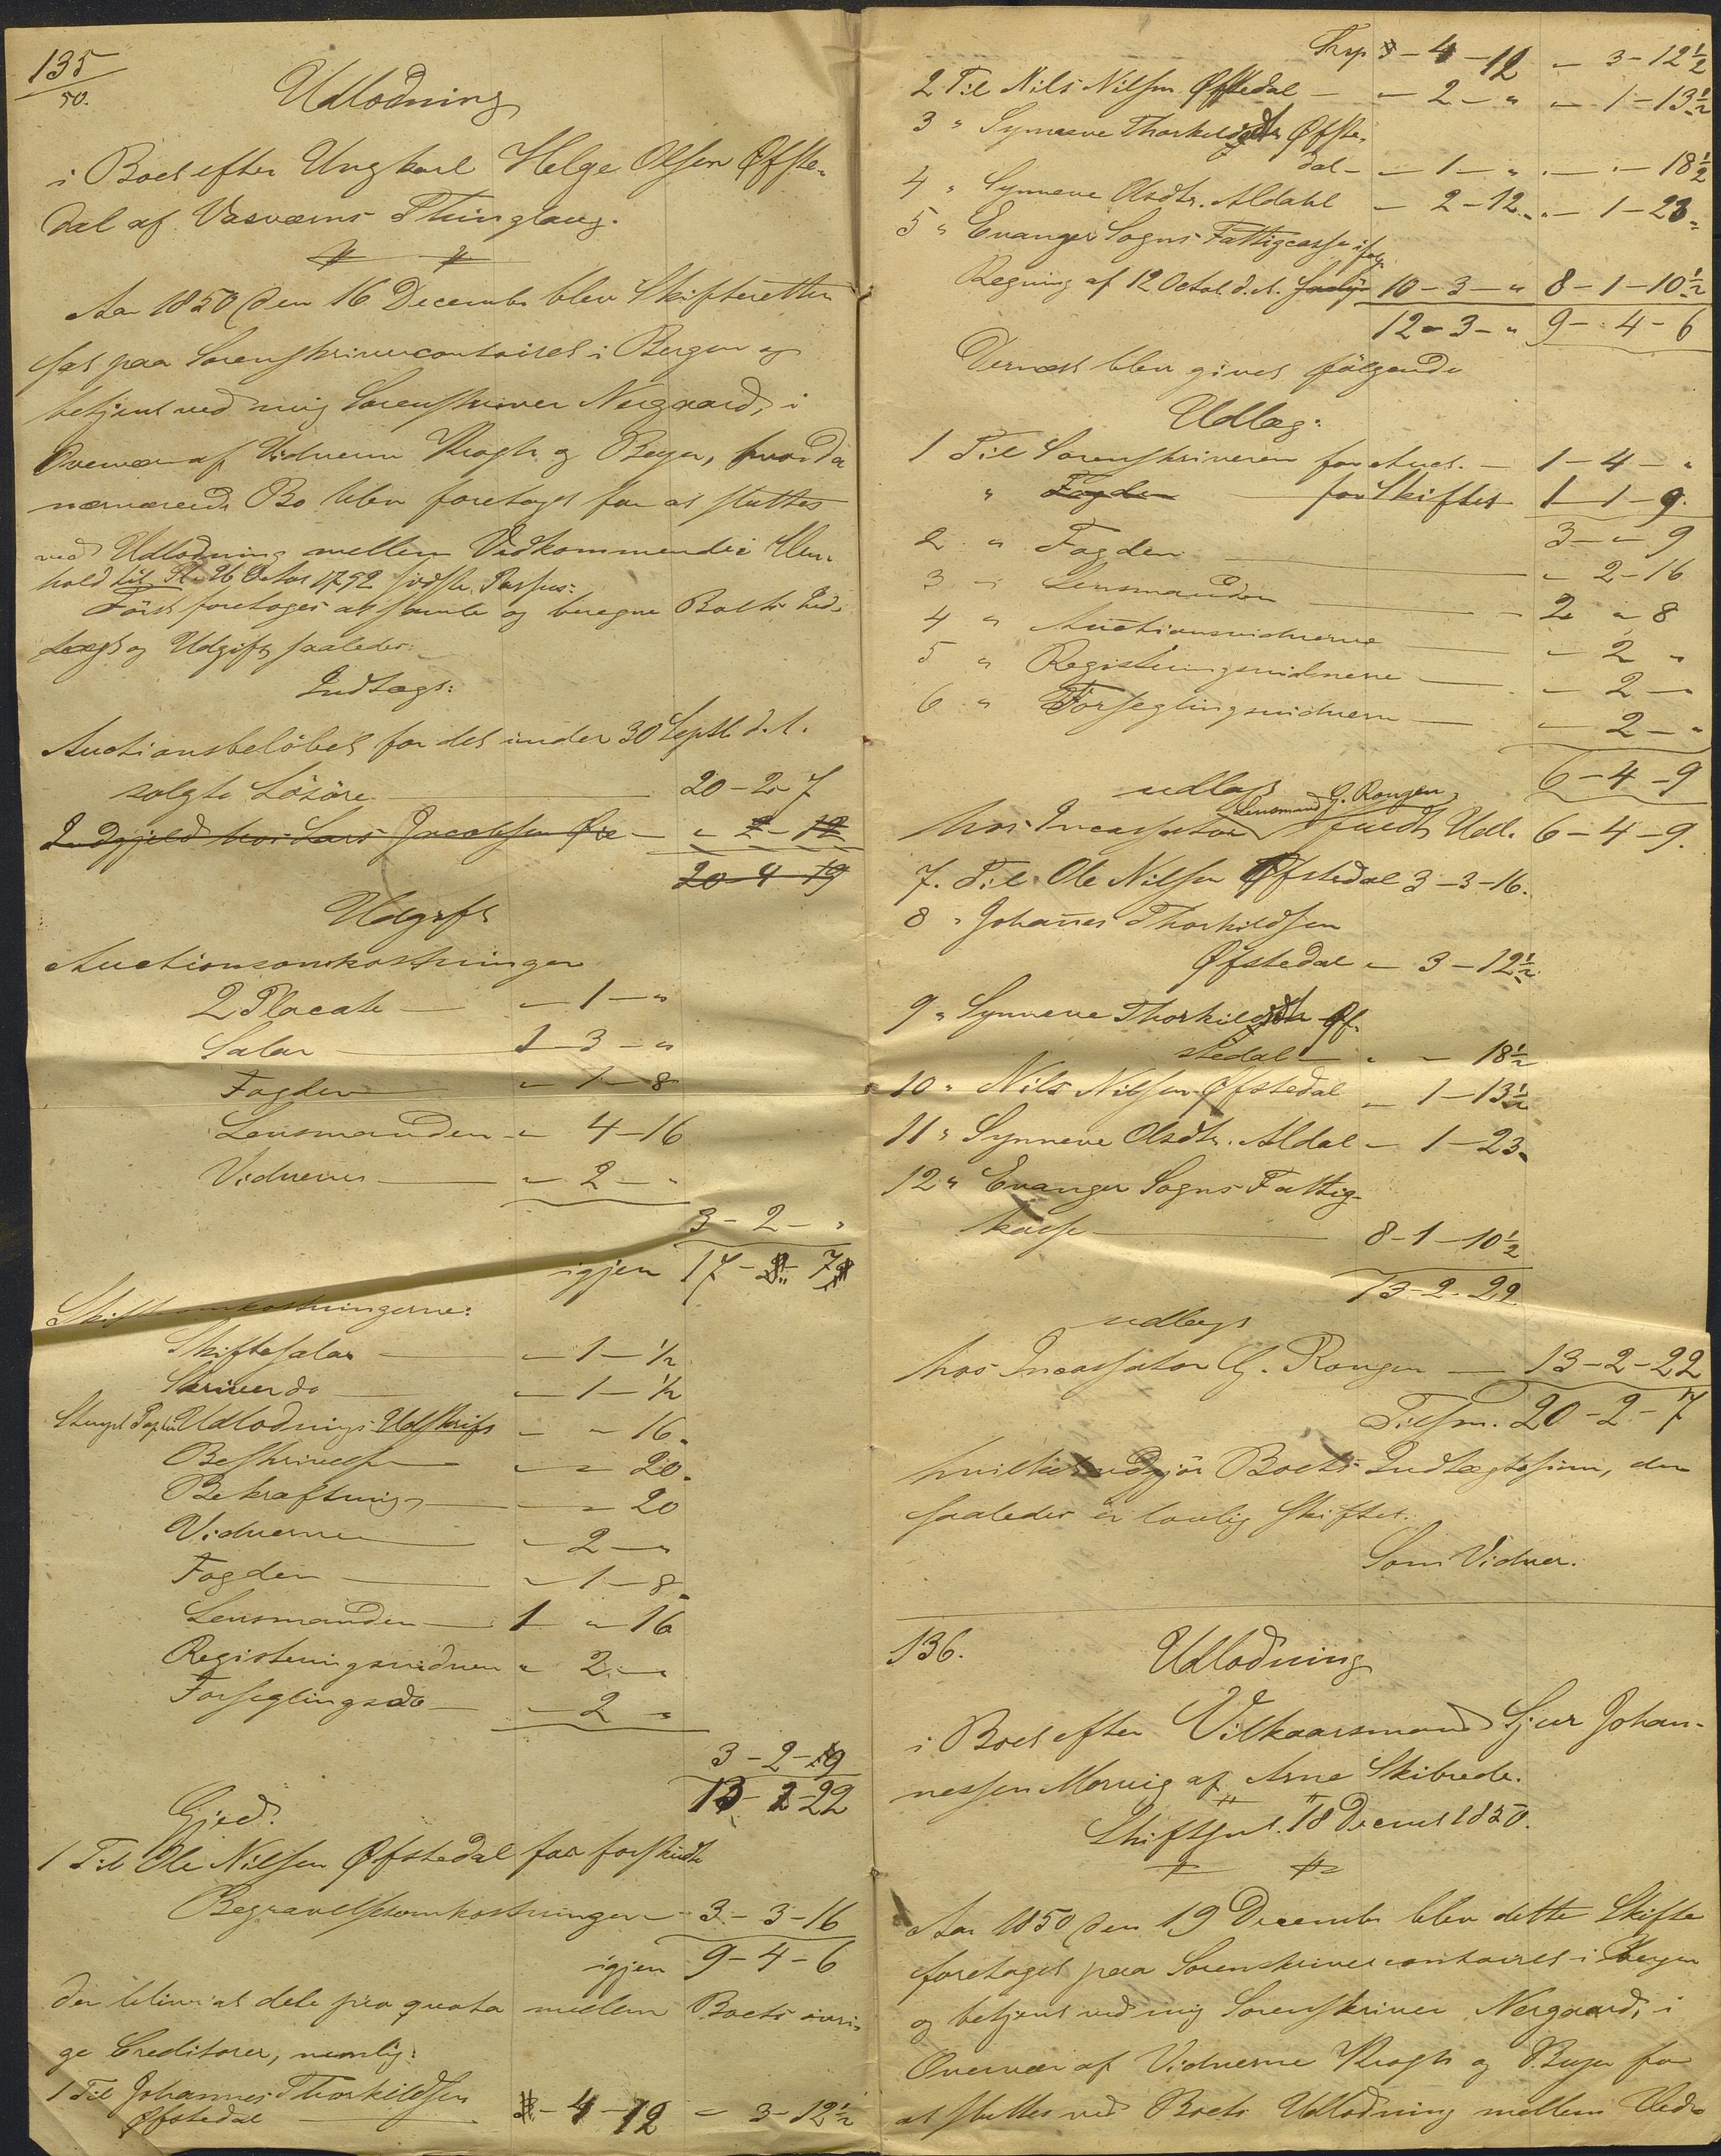 135
50.
Udlodning
i Boet efter Ungkarl Helge Olsen Øfste-
dal af Vasværns Thinglaug.
Aar 1850 den 16 Decembr blev Skifteretten
sat paa Sorenskrivercontoiret i Bergen og
betjent ved mig Sorenskriver Nergaard, i
Overvær af Vidnerne Krogh og Beyer, hvorda
nærværende Bo blev foretaget for at sluttes
ved Udlodning mellem Vedkommende i Hen-
hold til Pl. 26 Octor 1792 sidste Passus:
Först foretoges at samle og beregne Boets Ind-
tægt og Udgift saaledes:
Indtægt:
Auctionsbelöbet for det under 30 Septb d. A.
solgte Lösöre 20-2-7
Indgjeld hos Lars Jacobsen - " 2-12
20-4-19
Udgift
Auctionsomkostninger
2 Placate - " 1 - "
Salar 1-3-"
Fogden " - 1-8
Lensmanden - " 4-16
Vidnerne - " 2 - "
3-2-"
igjen 17-"-7
Skifteomkostningerne:
Skiftesalar - " 1-½
Skriver do - " 1-½
Stemplt Papir Udlodnings Udskrift - " 16
Beskrivelse " - " 20
Bekræftnings " - " 20
Vidnerne - " 2 - "
Fogden - " 1-8
Lensmanden 1 " 16
Registeringsvidner " 2 - "
Forseglingsdo - " 2 "
3-2-9
13-2-22
Gjæd:
1 Til Ole Nilsen Øfstedal for forskudte
Begravelsesomkostninger 3-3-16
igjen 9-4-6
der bliver at dele pro quota mellem Boets övri-
ge Creditorer, nemlig:
1 Til Johannes Thorkildsen
Øfstedal " - 4-12 - " 3-12½
Trsp " - 4-12 - " 3-12½
2 Til Nils Nilsen Øfstedal - " 2 - " - " 1-13½
3 " Synneve Thorkildsdtr Øfste-
dal - " 1 - " - " - 18½
4 " Synneve Olsdtr. Aldahl - " 2-12 - " 1-23
5 " Evanger Sogns Fattigcasse ifølge
Regning af 12 Octob d. A. 10-3-" 8-1-10½
12-3-" 9-4-6
Dernæst blev givet følgende
Udlæg:
1 Til Sorenskriveren for Auct. - 1-4-"
" Fogden for Skiftet 1-1-9
3-"-9
2 " Fogden " 2-16
3 " Lensmanden 2 " 8
4 " Auctionsvidnerne " 2 "
5 " Registeringsvidnerne " 2 - "
6 " Forseglingsvidnerne " 2 - "
6-4-9
udlagt
hos Incassator Lensmand G. Rongen fuldt Udl. 6-4-9.
7. Til Ole Nilsen Øfstedal 3-3-16.
8 " Johannes Thorkildsen
Øfstedal " 3-12½
9 " Synneve Thorkildsdtr Øf-
stedal " - " 18½
10 " Nils Nilsen Øfstedal " 1-13½
11 " Synneve Olsdtr. Aldal - " 1-23
12 " Evanger Sogns Fattig-
kasse 8-1-10½
13-2-22
udlagt
hos Incassator G. Rongen 13-2-22
Tilsm. 20-2-7
hvilket udgjör Boets Indtægtssum, der
saaledes er lovlig skiftet.
Som Vidner.
136.
Udlodning
i Boet efter Vilkaarsmand Sjur Johan-
nessen Mørvig af Arne Skibrede.
Skiftsml. 18 Decmb 1850.
Aar 1850 den 19 Decembr blev dette Skifte
foretaget paa Sorenskrivercontoiret i Bergen
og betjent ved mig Sorenskriver Nergaard, i
Overvær af Vidnerne Krogh og Beyer for
at sluttes ved Boets Udlodning mellem Ved-